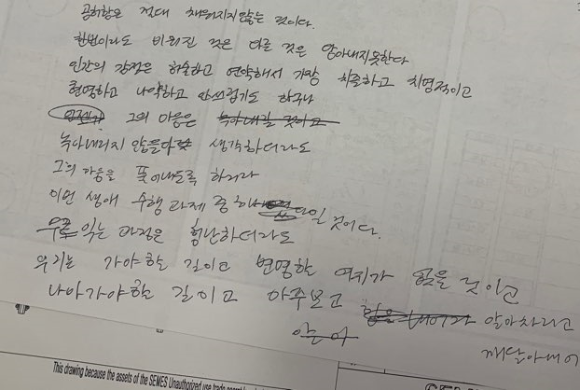 공허함은 절대 채워지지 않는 것이다.
한번이라도 비워진 것은 다른 것은 담아내지 못한다
인간의 감정은 허술하고 연약해서 가장 치졸하고 치명적이고
현명하고 나약하고 안쓰럽기도 하구나
그의 마음은 녹아내릴 것이고
녹아내리지 않을다 생각하더라도
그의 마음을 풀어내도록 하리라
이번 생애 수행과제 중 하나일 것이다.
우리 익는 과정은 험난하더라도
우리는 가야할 길이고 변명할 여지가 없을 것이고
나아가야할 길이고 마주보고 알아차리고
깨달아내어
This drawing because the assets of the SEMES Unauthorized use